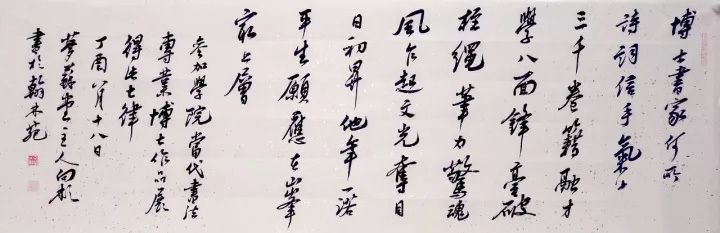 博士書家何所
詩詞信手氣
三千卷籍融才
學八面鋒毫破
繩筆力驚魂
風乍起文光奪目
日初昇他年一諾
平生願應在峯
最上層
參加學院當代書法
專業博士作品展
得此七律
丁酉八月十八日
夢蘇堂主人向彬
書於翰林苑